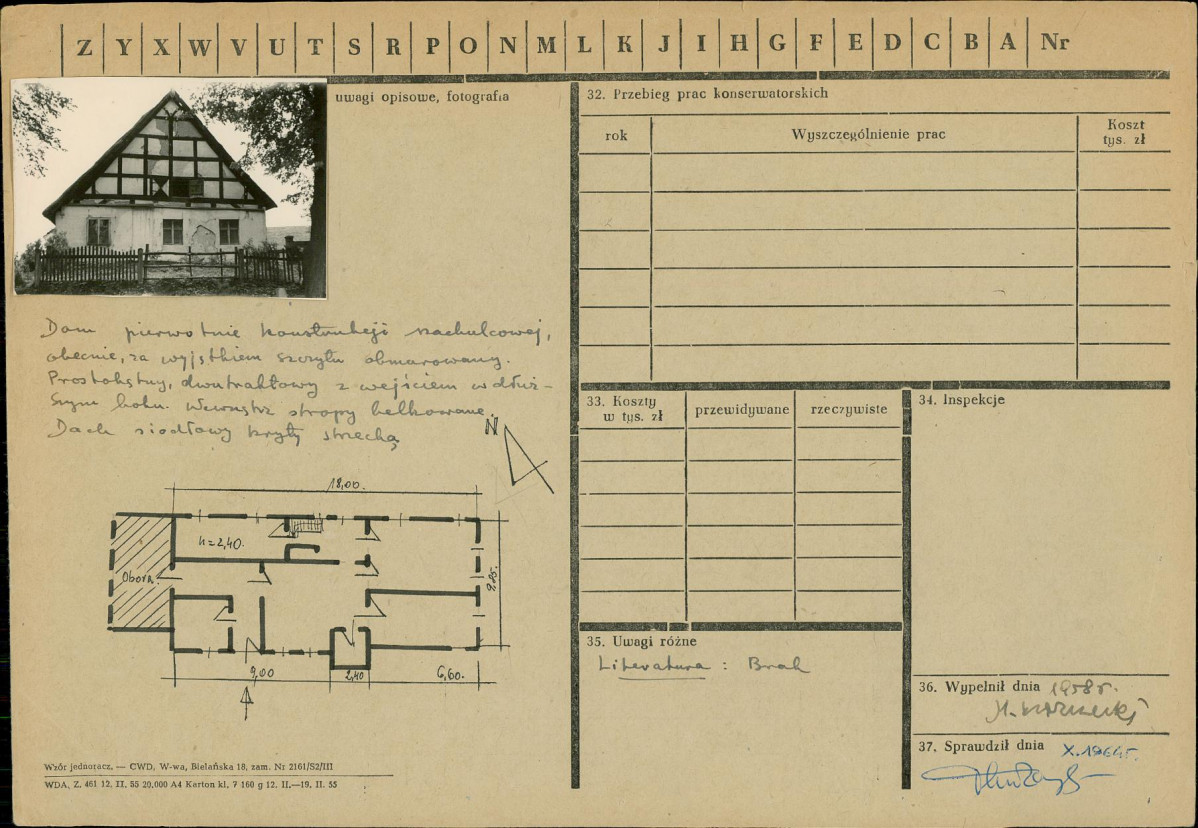 Z Y X W V U T S R P O N M L K J I H G F E D C B A Nr
uwagi opisowe, fotografia
Dom pierwotnie konstrukcji szachulcowej,
obecnie, za wyjątkiem szczytu obmurowany.
Prostokątny, dwutraktowy z wejściem w dłuż-
szym boku. Wewnątrz stropy belkowane.
Dach siodłowy kryty strzechą
N
18,00.
h=2,40.
Obora.
9.25.
9,00
2,40
6,60.
Wzór jednoracz. — CWD, W-wa, Bielańska 18, zam. Nr 2161/S2/III
WDA, Z. 461 12. II. 55 20.000 A4 Karton kl. 7 160 g 12. II.—19. II. 55
32. Przebieg prac konserwatorskich
rok
Wyszczególnienie prac
Koszt
tys. zł
33. Koszty
w tys. zł
przewidywane
rzeczywiste
34. Inspekcje
35. Uwagi różne
Literatura : Brak
36. Wypełnił dnia 1958 r.
37. Sprawdził dnia X.1964 r.